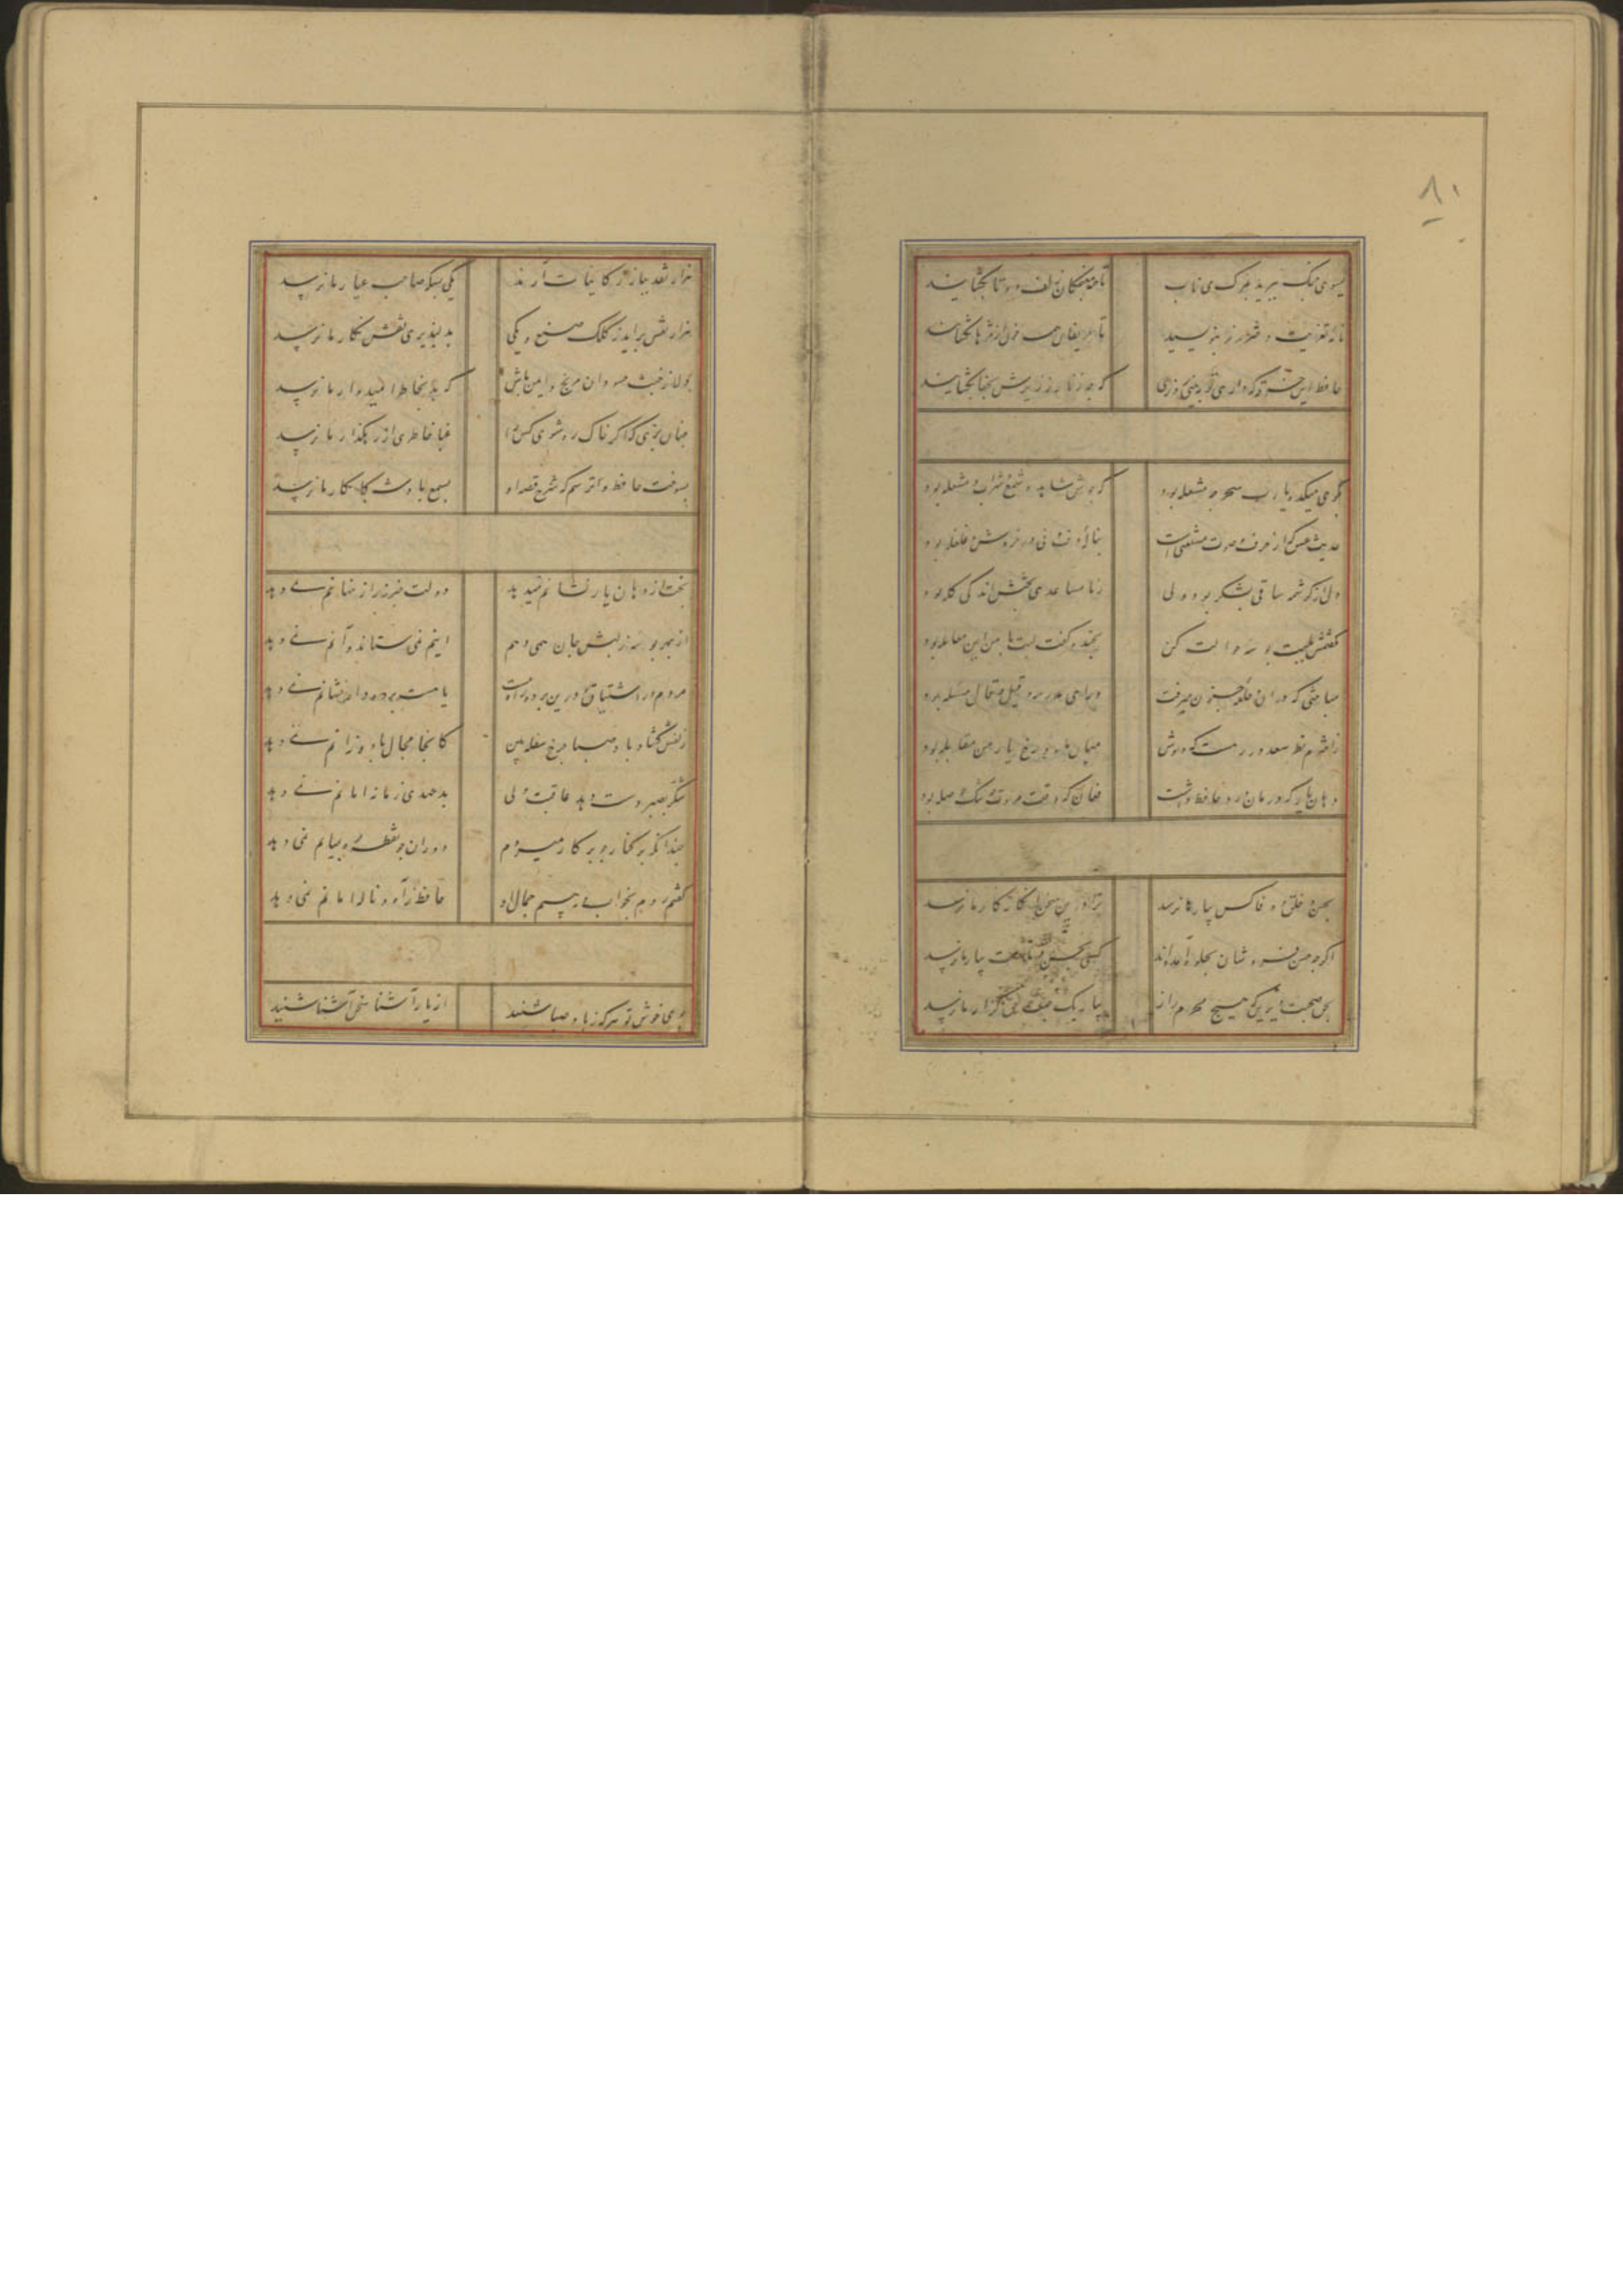 ۸۱
گیسوی چنک ببرید بمرک می ناب
تا همه مغبچکان زلف دو تا بکشایند
نامه تعزیت دختر رز بنویسید
تا حریفان همه خون از مژها بکشایند
حافظ این خرقه که داری تو ببینی فردا
که چه زنار ز زیرش بجفا بکشایند
بکوی میکده یارب سحر چه مشغله بود
که جوش شاهد و شمع شراب و مشعله بود
حدیث عشق که از حرف و صوت مستغنی است
بنالهٔ دف و نی در خروش و غلغله بود
دل از کرشمه ساقی بشکر بود ولی
ز نامساعدی بختش اندکی کله بود
کفتمش بلبت بوسه حوالت کن
بخنده کفت کیت با من این معامله بود
مباحثی که در ان حلقه جنون میرفت
ورای مدرسه و قیل و قال مسئله بود
ز اخترم نظر سعد در رهست که دوش
میان ماه و رخ یار من مقابله بود
دهان یار که درمان درد حافظ داشت
فغان که وقت مروت چه تنک حوصله بود
بحسن و خلق و وفا کس بیار ما نرسد
ترا درین سخن انکار کار ما نرسد
اکر چه حسن فروشان بجلوه آمده اند
کسی بحسن و ملاحت بیار ما نرسد
بحق صحبت دیرین که هیچ محرم راز
بیار یک جهت حق کزار ما نرسد
هزار نقد ببازار کاینات آرند
یکی بسکه صاحب عیار ما نرسد
هزار نقش براید ز کلک صنع و یکی
بدلپذیری نقش نکار ما نرسد
دلا ز خبث حسودان مرنج و ایمن باش
که بد بخاطر امیدوار ما نرسد
چنان بزی که اکر خاک ره شوی کس را
غبار خاطری از رهکذار ما نرسد
بسوخت حافظ و ترسم که شرح قصه او
بسمع پادشه کامکار ما نرسد
بخت از دهان یار نشانم نمیدهد
دولت خبر ز راز نهانم نمی دهد
از بهر بوسه ز لبش جان همی دهم
اینم نمی ستاند و آنم نمی دهد
مردم در اشتیاق و درین پرده راه نیست
یا هست پرده دار نشانم نمی دهد
زلفش کشاد باد صبا چرخ سفله بین
کانجا مجال باد وزانم نمی دهد
شکر بصبر دست دهد عاقبت ولی
بدعهدی زمانه امانم نمی دهد
چندانکه بر کنار چو پرکار میروم
دوران چو نقطه ره بمیانم نمی دهد
کفتم روم بخواب ببینم جمال او
حافظ ز آه و ناله امانم نمی دهد
بوی خوش تو هر که ز باد صبا شنید
از یار آشنا سخن آشنا شنید